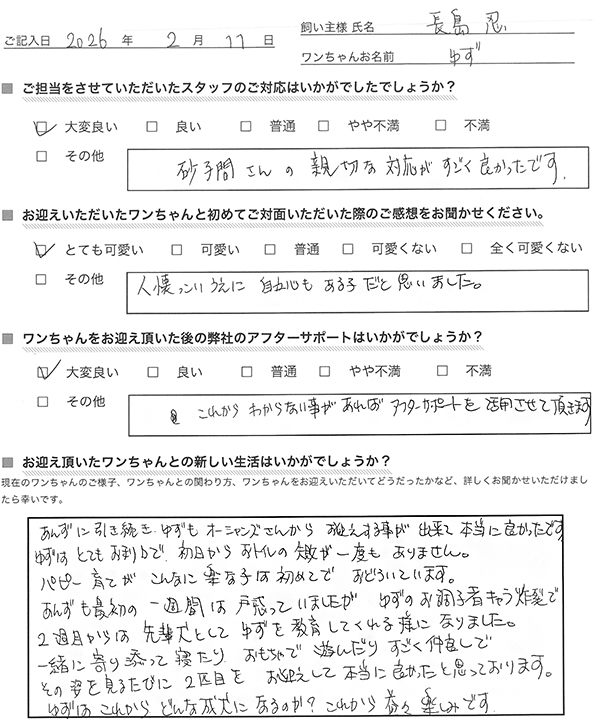 ご記入日 2026 年 2 月 17 日
飼い主様 氏名 長島 忍
ワンちゃんお名前 ゆず
■ ご担当をさせていただいたスタッフのご対応はいかがでしたでしょうか？
☑ 大変良い □ 良い □ 普通 □ やや不満 □ 不満
□ その他 砂子間さんの親切な対応がすごく良かったです.
■ お迎えいただいたワンちゃんと初めてご対面いただいた際のご感想をお聞かせください。
☑ とても可愛い □ 可愛い □ 普通 □ 可愛くない □ 全く可愛くない
□ その他 人懐っこいうえに 自立心も ある子だと思いました。
■ ワンちゃんをお迎え頂いた後の弊社のアフターサポートはいかがでしょうか？
☑ 大変良い □ 良い □ 普通 □ やや不満 □ 不満
□ その他 これから わからない事が あれば アフターサポートを 活用させて頂きます
■ お迎え頂いたワンちゃんとの新しい生活はいかがでしょうか？
現在のワンちゃんのご様子、ワンちゃんとの関わり方、ワンちゃんをお迎えいただいてどうだったかなど、詳しくお聞かせいただけまし
たら幸いです。
あんずに引き続き ゆずも オーシャンズさんから お迎えする事が 出来て 本当に良かったです
ゆずは とても お利口で、初日から おトイレの 失敗が一度も ありません。
パピー育てが こんなに 楽な子は 初めてで おどろいています。
あんずも最初の 一週間は 戸惑っていましたが ゆずのお調子者キャラ炸裂で
2週目からは 先輩犬として ゆずを教育してくれる様に なりました。
一緒に寄り添って 寝たり おもちゃで 遊んだり すごく仲良しで
その姿を見るたびに 2匹目を お迎えして 本当に良かったと思っております。
ゆずは これから どんな成犬に あるのか? これから 益々 楽しみです.